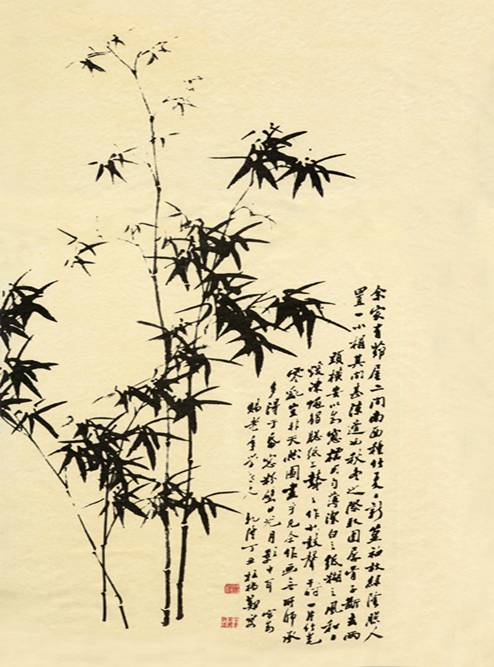 余家有茆屋二間南面種竹夏日新篁初放綠陰照人
置一小榻其中甚涼適也秋冬之際取圍屏骨子斷去兩
頭橫安以為窗櫺用勻薄潔白之紙糊之風和日
煖凍蠅觸紙上鼕鼕作小鼓聲于時一片竹影
零亂豈非天然圖畫乎凡吾作画無所師承
多得于紙窗粉壁日光月影中耳
乾隆丁丑板橋鄭燮